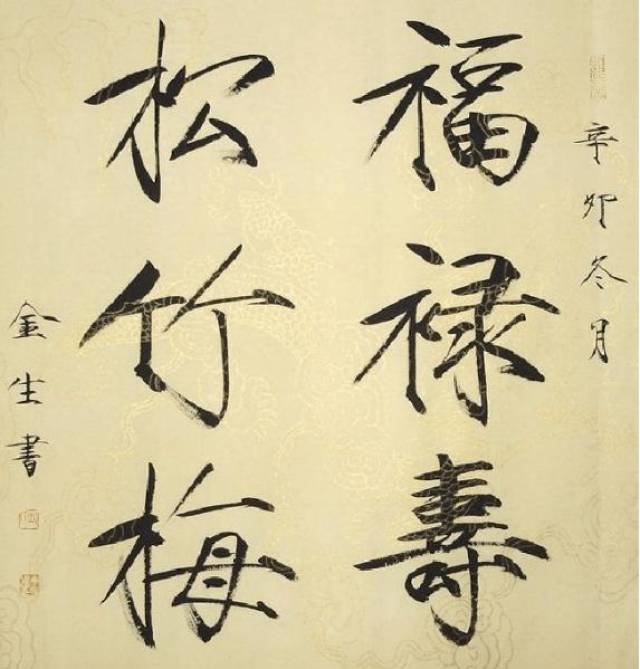 辛卯冬月
福禄壽
松竹梅
金生書